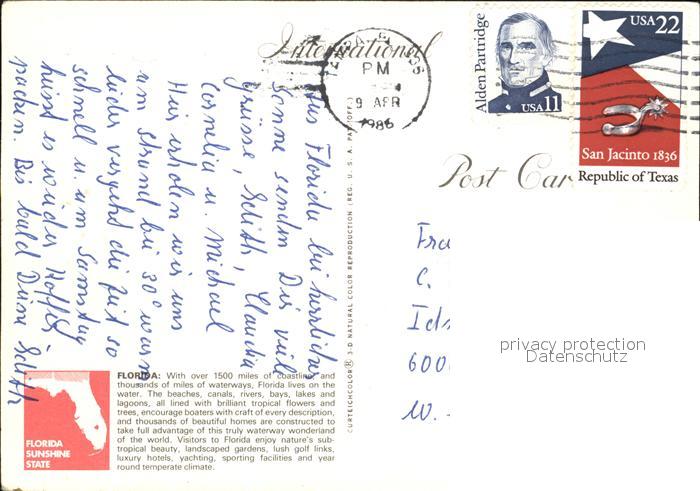 International
PM
9 APR
1986
Alden Partridge
USA 11
USA 22
San Jacinto 1836
Republic of Texas
Post Car
Aus Florida bei herrlicher
Sonne senden Dir viele
Grüsse, Edith, Claudia
Cornelia u. Michael
Hier erholen wir uns
am Strand bei 30° warm
leider vergeht die Zeit so
schnell u. am Samstag
heisst es wieder Koffer
packen. Bis bald Deine Edith
CURTEICHCOLOR® 3-D NATURAL COLOR REPRODUCTION (REG. U.S.A. PAT. OFF.)
Fra
C.
600
W.
privacy protection
Datenschutz
FLORIDA: With over 1500 miles of coastline, and
thousands of miles of waterways, Florida lives on the
water. The beaches, canals, rivers, bays, lakes and
lagoons, all lined with brilliant tropical flowers and
trees, encourage boaters with craft of every description,
and thousands of beautiful homes are constructed to
take full advantage of this truly waterway wonderland
of the world. Visitors to Florida enjoy nature's sub-
tropical beauty, landscaped gardens, lush golf links,
luxury hotels, yachting, sporting facilities and year
round temperate climate.
FLORIDA
SUNSHINE
STATE